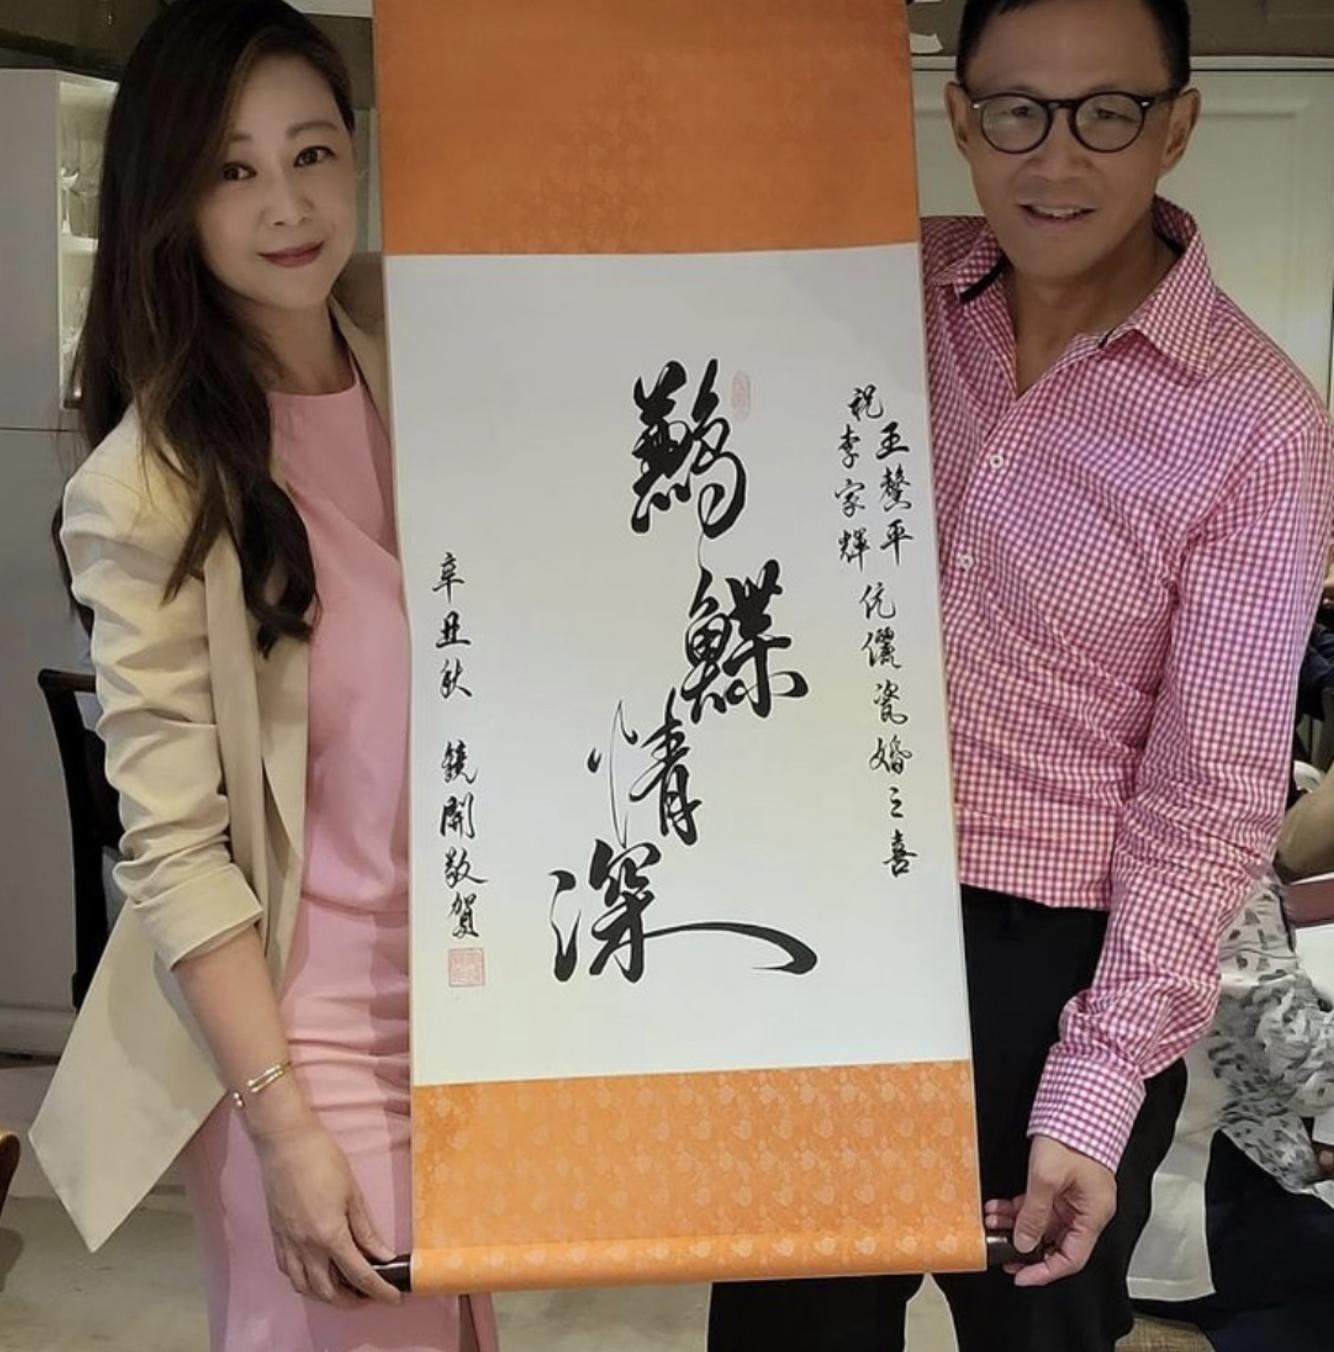 祝
王馨平
李家輝
伉儷瓷婚之喜
鶼鰈情深
辛丑秋 鏡開敬賀